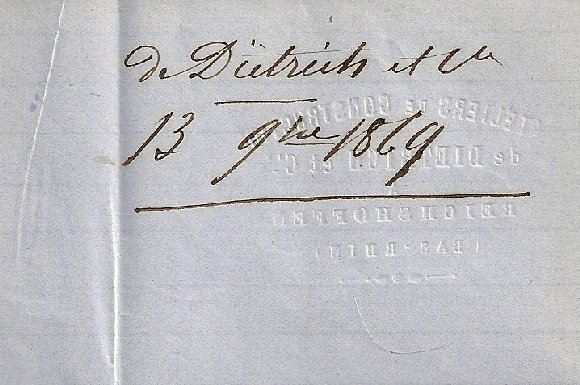 de Dietrich et Cie
13 9bre 1869
ATELIERS DE CONSTRUCTION
de DIETRICH et Cie
A
REICHSHOFFEN
(BAS-RHIN)